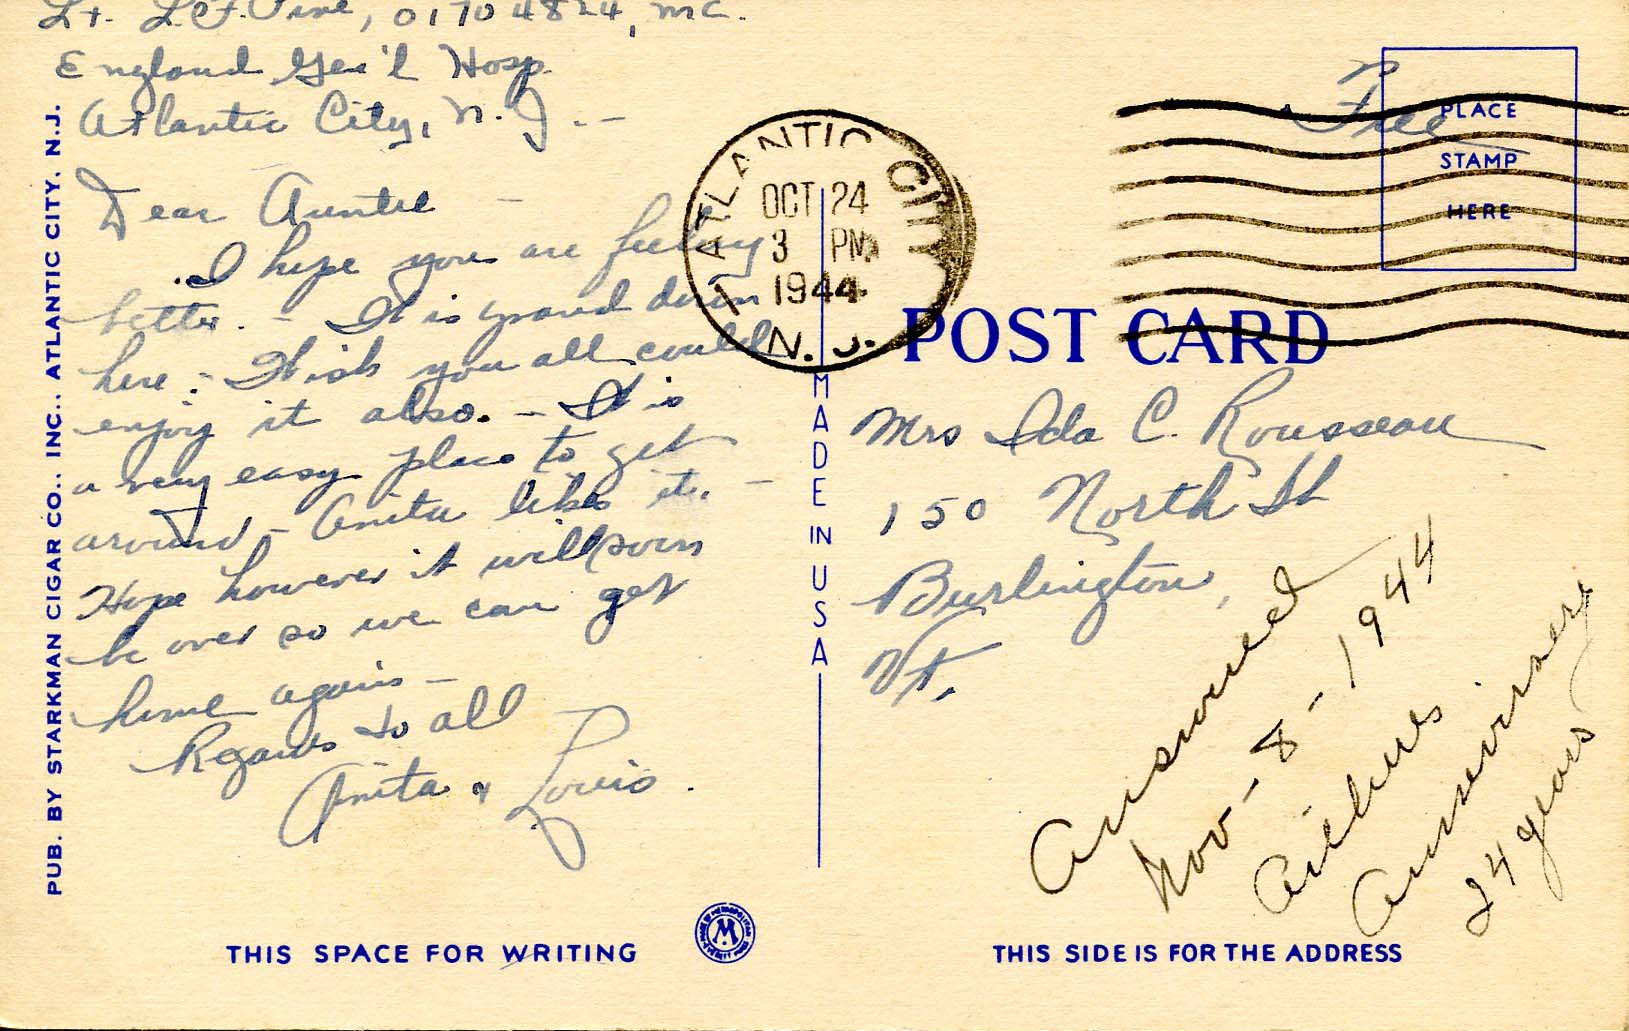 Lt. L.F. Pine, 01704824, MC.
England Gen'l Hosp.
Atlantic City, N.J. -
Dear Auntie -
I hope you are feeling
better. - It is grand down
here - Wish you all could
enjoy it also. - It is
a very easy place to get
around - Anita likes it. -
Hope however it will soon
be over so we can get
home again -
Regards to all
Anita & Louis.
PUB. BY STARKMAN CIGAR CO., INC., ATLANTIC CITY, N.J.
THIS SPACE FOR WRITING
ATLANTIC CITY
OCT 24
3 PM
1944
N. J.
MADE IN USA
Free
PLACE
STAMP
HERE
POST CARD
Mrs Ida C. Rousseau
150 North St
Burlington,
Vt.
Answered
Nov - 8 - 1944
24 years
THIS SIDE IS FOR THE ADDRESS